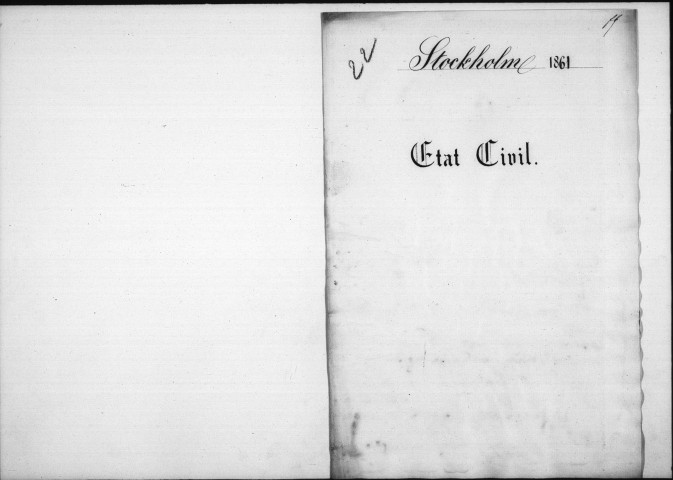 22
Stockholm 1861
Etat Civil.